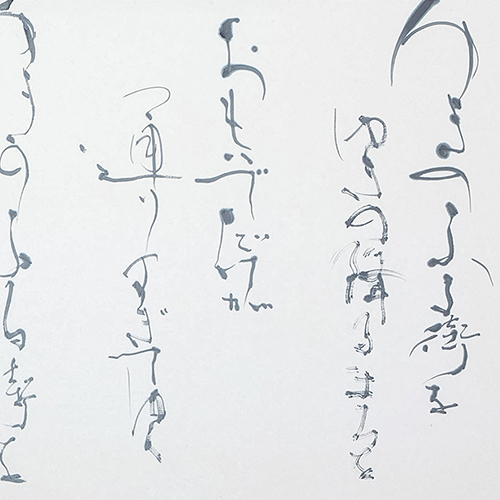 ゆきのふる街を
ゆきの降るまちを
おもいでだけが
通りすぎてゆく
ゆきのふる街を